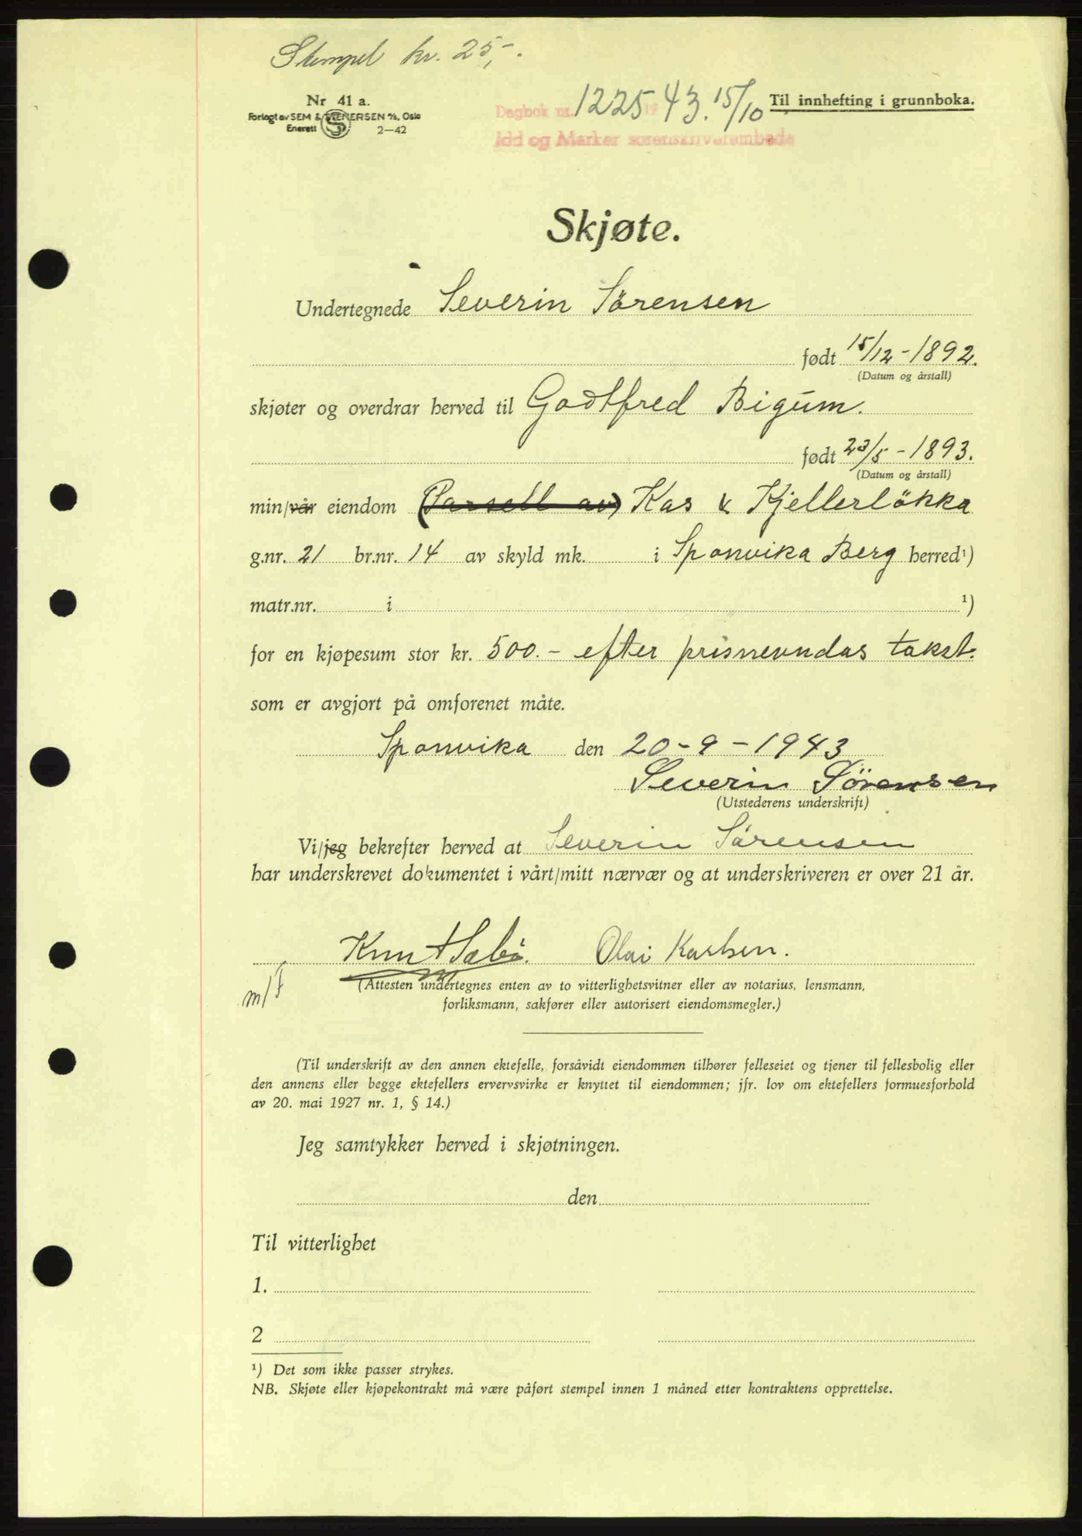 Stempel kr. 25,-.
Nr 41 a.
Forlagt av SEM & STENERSEN A/S, Oslo
Enerett 2-42
Dagbok nr. 1225 19 43. 15/10
Til innhefting i grunnboka.
Idd og Marker sorenskriverembede
Skjøte.
Undertegnede Severin Sørensen
født 15/12 - 1892.
(Datum og årstall)
skjøter og overdrar herved til Godtfred Bigum.
født 23/5 - 1893.
(Datum og årstall)
min/vår eiendom (Parsell av) Kas & Kjellerløkka
g.nr. 21 br.nr. 14 av skyld mk. i Sponvika Berg herred¹)
matr.nr. i ¹)
for en kjøpesum stor kr. 500.- efter prisnevndas takst.
som er avgjort på omforenet måte.
Sponvika den 20-9-1943
Severin Sörensen
(Utstederens underskrift)
Vi/jeg bekrefter herved at Severin Sørensen
har underskrevet dokumentet i vårt/mitt nærvær og at underskriveren er over 21 år.
Knut Sæbø. Olai Karlsen.
m/F
(Attesten undertegnes enten av to vitterlighetsvitner eller av notarius, lensmann,
forliksmann, sakfører eller autorisert eiendomsmegler.)
(Til underskrift av den annen ektefelle, forsåvidt eiendommen tilhører felleseiet og tjener til fellesbolig eller
den annens eller begge ektefellers ervervsvirke er knyttet til eiendommen; jfr. lov om ektefellers formuesforhold
av 20. mai 1927 nr. 1, § 14.)
Jeg samtykker herved i skjøtningen.
den
Til vitterlighet
1.
2
¹) Det som ikke passer strykes.
NB. Skjøte eller kjøpekontrakt må være påført stempel innen 1 måned etter kontraktens opprettelse.